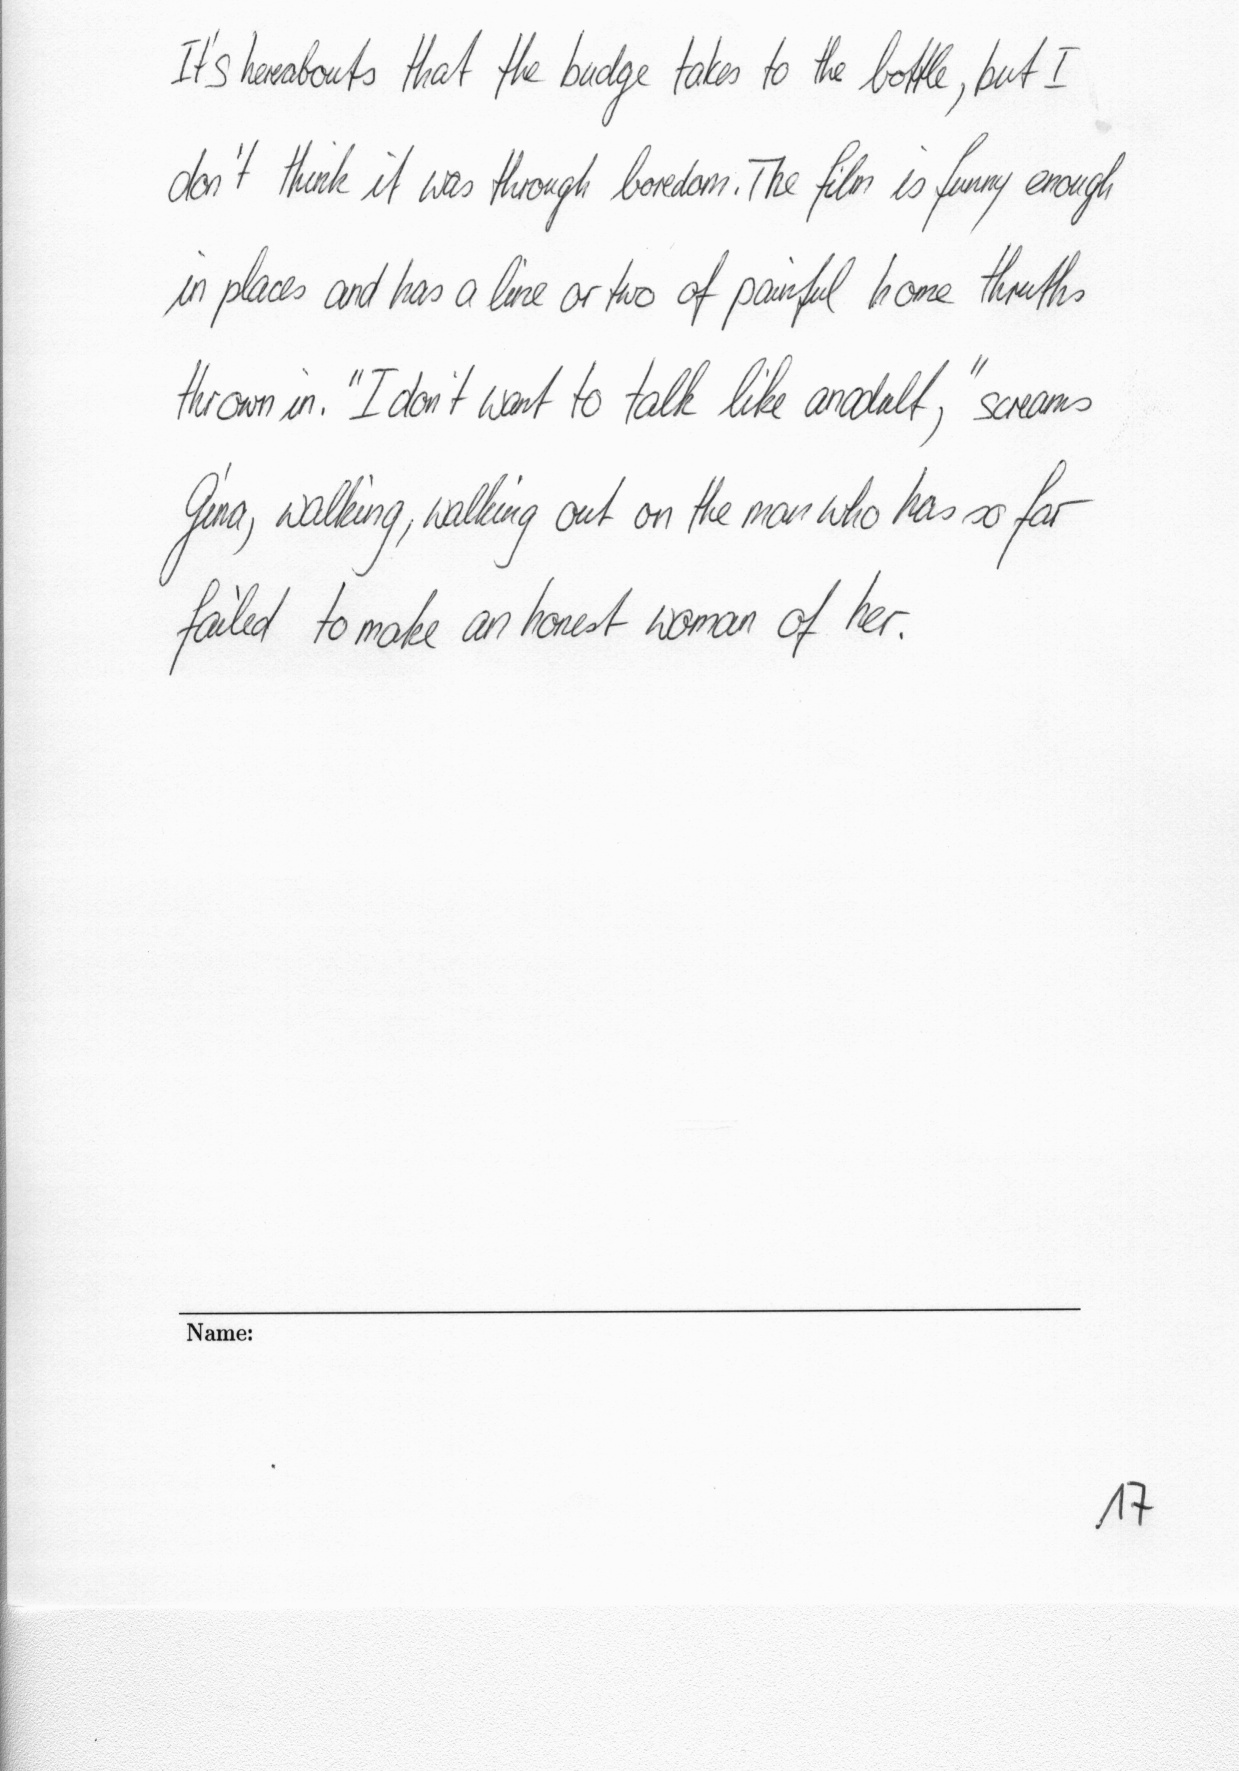 It's hereabouts that the budge takes to the bottle, but I
don't think it was through boredom. The film is funny enough
in places and has a line or two of painful home thruths
thrown in. "I don't want to talk like anadult," screams
Gina, walking, walking out on the man who has so far
failed to make an honest woman of her.
Name:
17